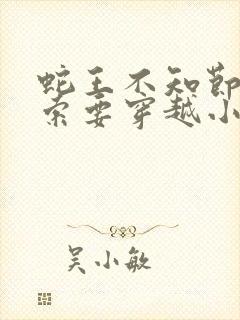 蛇王不知节
索要穿越小
吴小敏